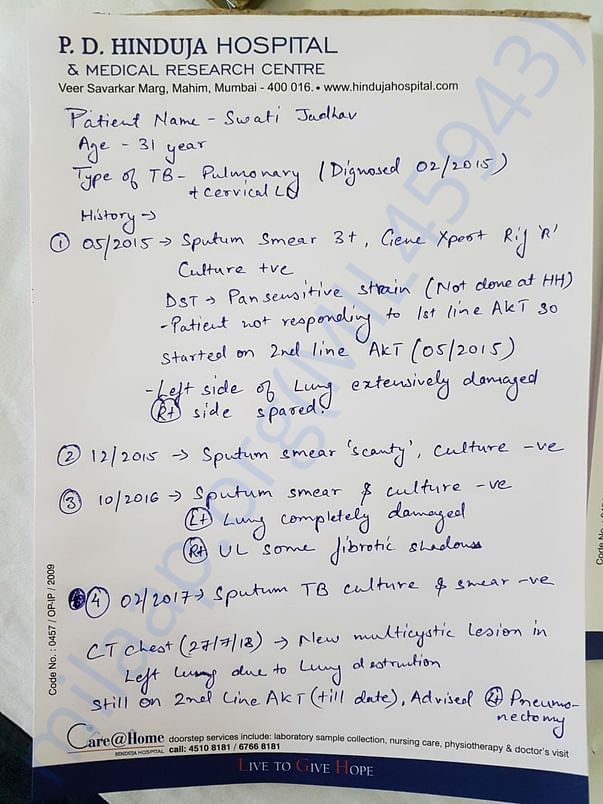 P. D. HINDUJA HOSPITAL
& MEDICAL RESEARCH CENTRE
Veer Savarkar Marg, Mahim, Mumbai - 400 016. • www.hindujahospital.com
Patient Name - Swati Jadhav
Age - 31 year
Type of TB - Pulmonary (Dignosed 02/2015)
+ Cervical LN
History →
① 05/2015 → Sputum Smear 3+, Gene Xpert Rif 'R'
Culture +ve
DST → Pansensitive strain (Not done at HH)
- Patient not responding to 1st line AKT so
started on 2nd line AKT (05/2015)
- Left side of Lung extensively damaged
Rt side spared.
② 12/2015 → Sputum smear 'scanty', culture -ve
③ 10/2016 → Sputum smear & culture -ve
Lt Lung completely damaged
Rt UL some fibrotic shadows
④ 02/2017 → Sputum TB culture & smear -ve
CT Chest (27/7/18) → New multicystic lesion in
Left Lung due to Lung destruction
still on 2nd Line AKT (till date), Advised Lt Pneumo-
nectomy
Code No. : 0457 / OP-IP / 2009
Care@Home doorstep services include: laboratory sample collection, nursing care, physiotherapy & doctor's visit
HINDUJA HOSPITAL call: 4510 8181 / 6766 8181
LIVE TO GIVE HOPE
milaap.org(MIL45943)
Code No.